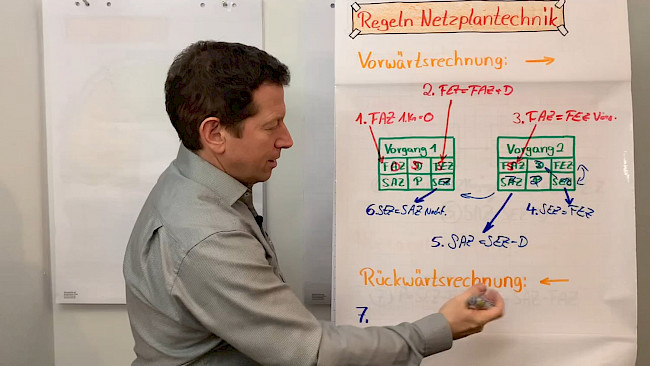 Regeln Netzplantechnik
Vorwärtsrechnung: →
2. FEZ=FAZ+D
1. FAZ 1.Kn=0
3. FAZ=FEZ Vorg.
Vorgang 1
FAZ D FEZ
SAZ P SEZ
Vorgang 2
FAZ D FEZ
SAZ P SEZ
6. SEZ=SAZ Nachf.
4. SEZ=FEZ
5. SAZ=SEZ-D
Rückwärtsrechnung: ←
7.